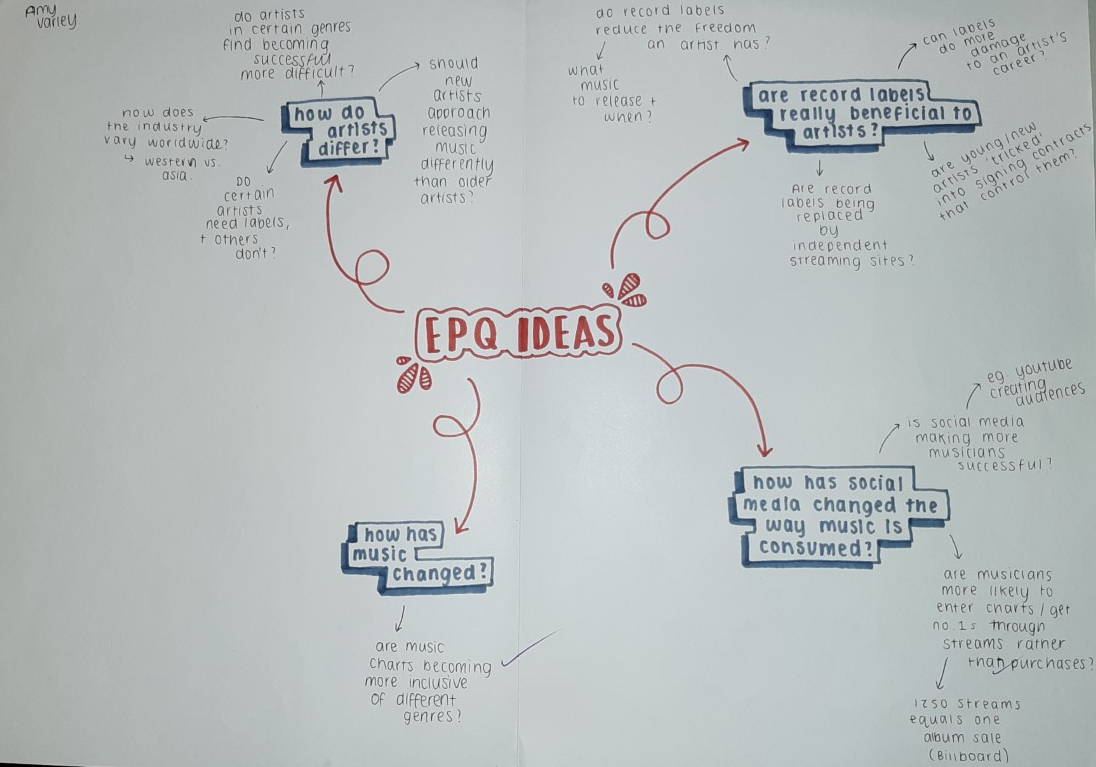 Amy
Varley
do artists
in certain genres
find becoming
successful
more difficult?
should
new
artists
approach
releasing
music
differently
than older
artists?
how does
the industry
vary worldwide?
↳ western vs.
asia.
how do
artists
differ?
DO
certain
artists
need labels,
+ others
don't?
do record labels
reduce the freedom
an artist has?
what
music
to release +
when?
can labels
do more
damage
to an artist's
career?
are record labels
really beneficial to
artists?
are young/new
artists 'tricked'
into signing contracts
that control them?
Are record
labels being
replaced
by
independent
streaming sites?
EPQ IDEAS
eg. youtube
creating
audiences
is social media
making more
musicians
successful?
how has social
media changed the
way music is
consumed?
are musicians
more likely to
enter charts/get
no.1s through
streams rather
than purchases?
1250 streams
equals one
album sale
(Billboard)
how has
music
changed?
are music
charts becoming
more inclusive
of different
genres?